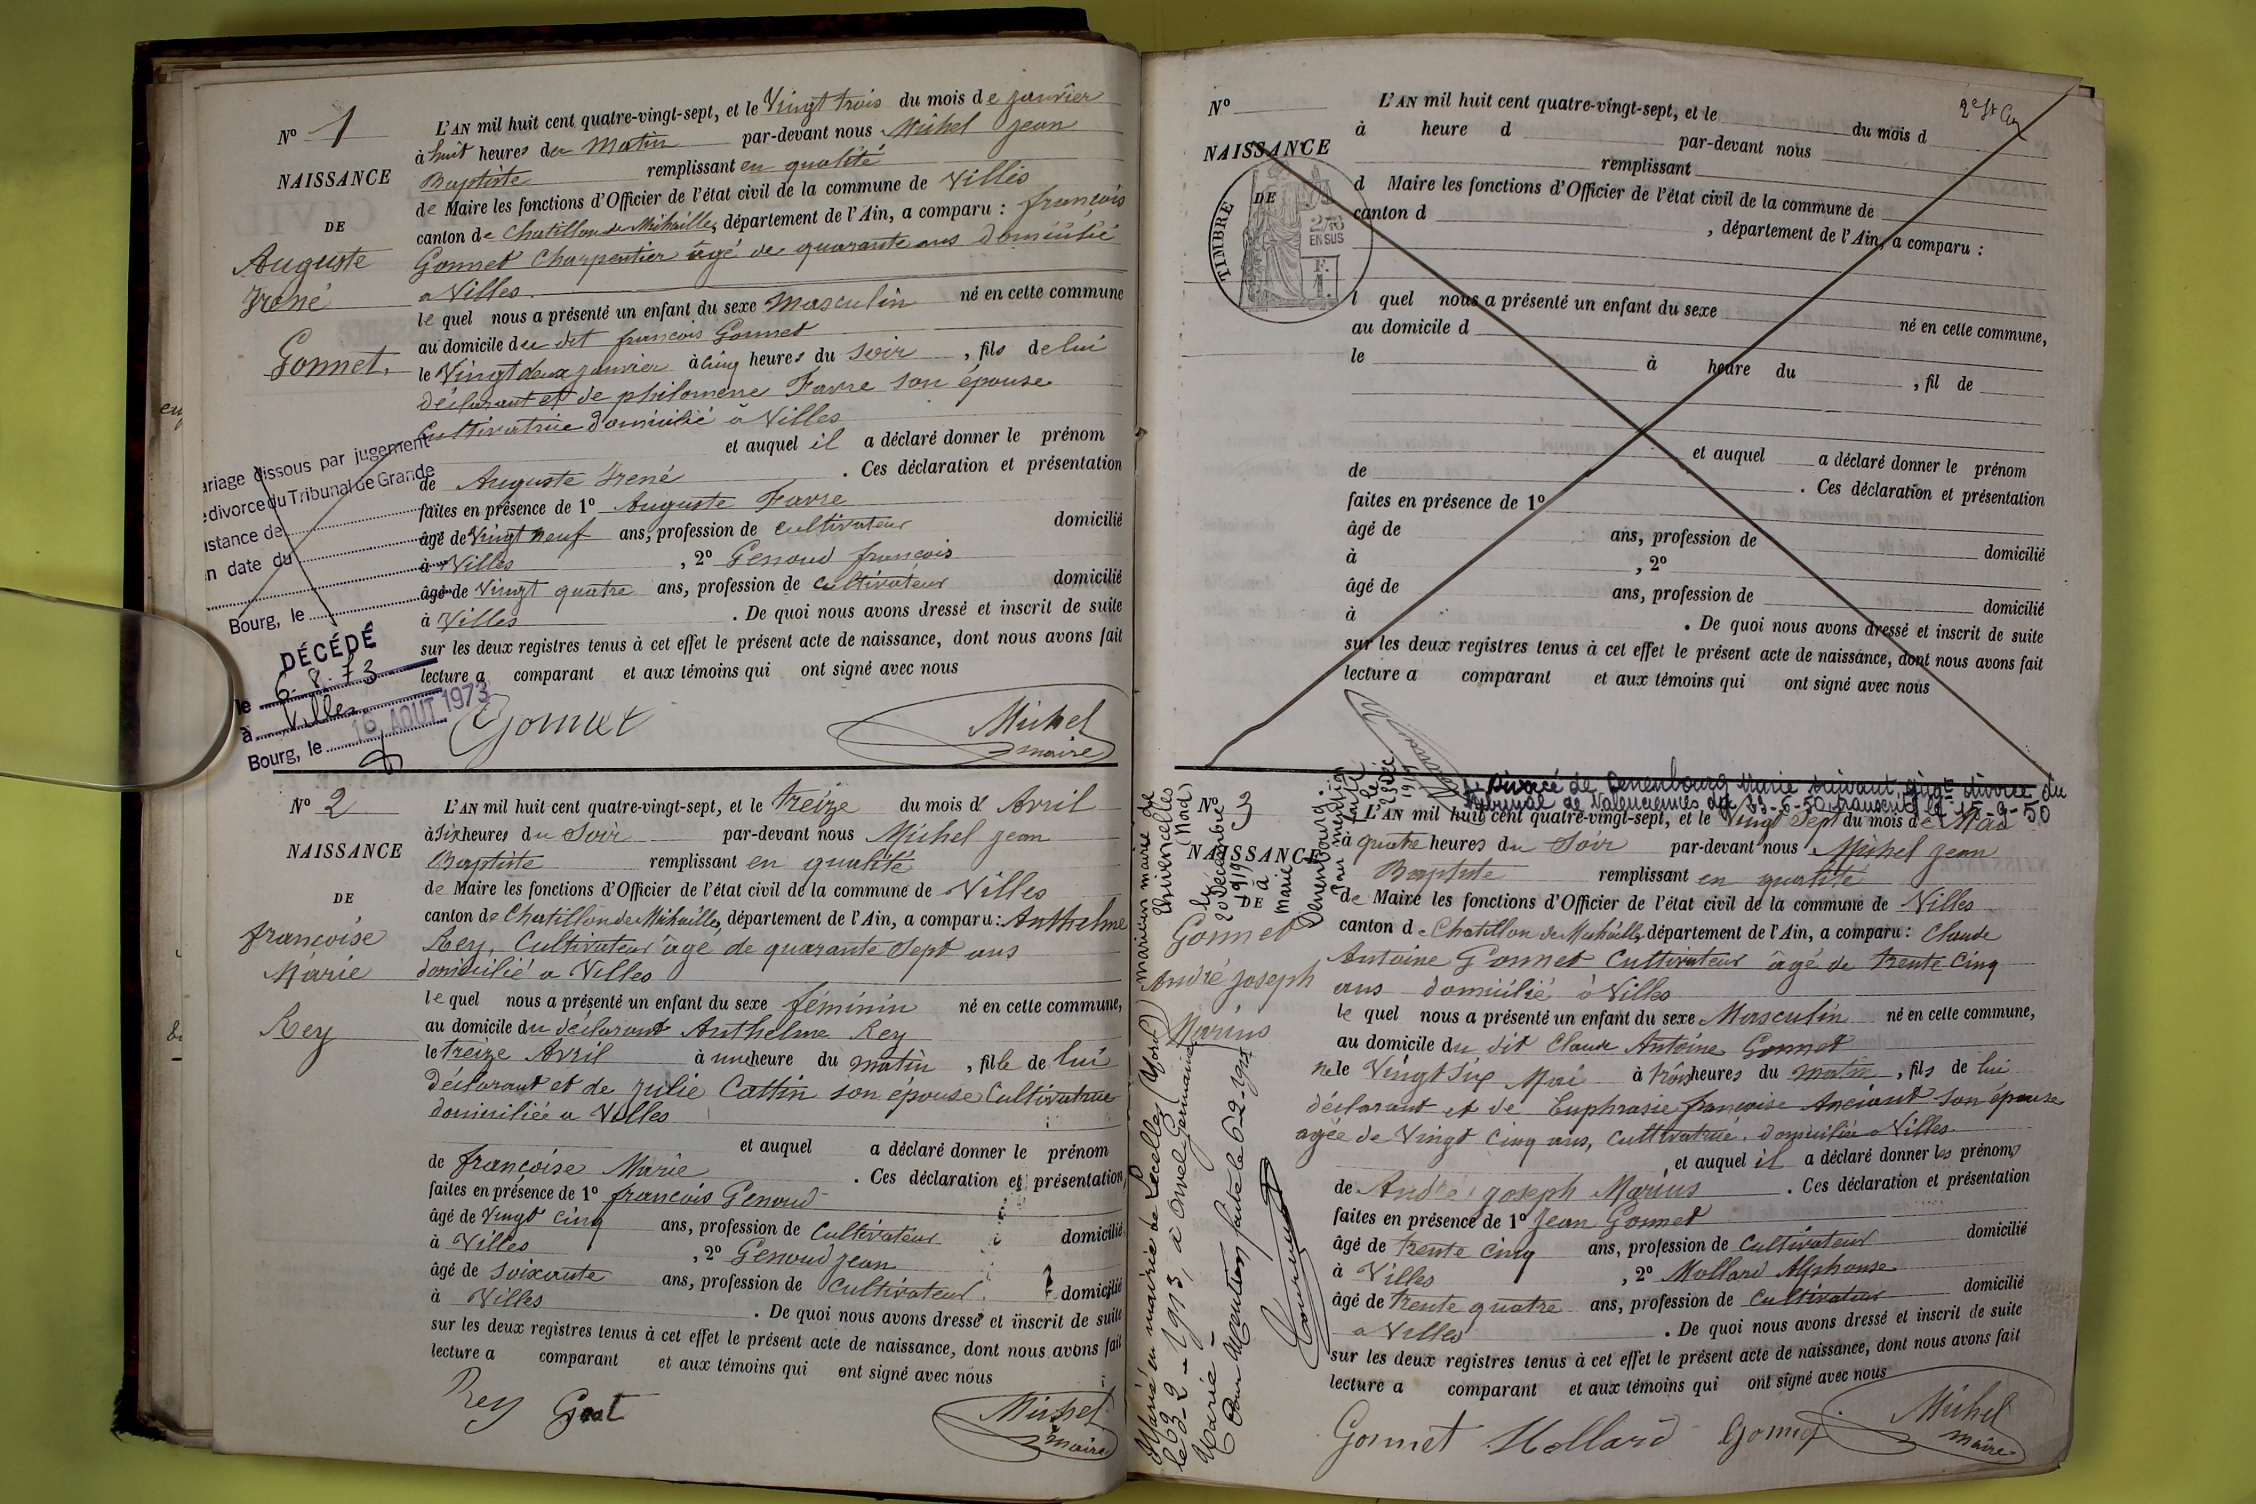 N° 1
NAISSANCE
DE
Auguste
Irené
Gonnet.
L'AN mil huit cent quatre-vingt-sept, et le Vingt trois du mois de janvier
à huit heures du Matin par-devant nous Michel jean
Baptiste remplissant en qualité
de Maire les fonctions d'Officier de l'état civil de la commune de Villes
canton de Chatillon de Michaille, département de l'Ain, a comparu : françois
Gonnet Charpentier âgé de quarante ans Domicilié
a Villes.
le quel nous a présenté un enfant du sexe Masculin né en cette commune
au domicile du dit françois Gonnet
le Vingt deux janvier à cinq heures du soir, fils de lui
déclarant et de philomene Favre son épouse
Cultivatrice domicilié à Villes
et auquel il a déclaré donner le prénom
de Auguste Irené. Ces déclaration et présentation
faites en présence de 1° Auguste Favre
âgé de Vingt neuf ans, profession de cultivateur domicilié
à Villes, 2° Genoud françois
âgé de Vingt quatre ans, profession de cultivateur domicilié
à Villes. De quoi nous avons dressé et inscrit de suite
sur les deux registres tenus à cet effet le présent acte de naissance, dont nous avons fait
lecture a comparant et aux témoins qui ont signé avec nous
Gonnet Michel
maire
ariage dissous par jugement
e divorce du Tribunal de Grande
nstance de
n date du
Bourg, le
DÉCÉDÉ
le 6.8.73
à Villes
Bourg, le 16 AOUT 1973
N° 2
NAISSANCE
DE
françoise
Marie
Rey
L'AN mil huit cent quatre-vingt-sept, et le treize du mois d'Avril
à six heures du Soir par-devant nous Michel jean
Baptiste remplissant en qualité
de Maire les fonctions d'Officier de l'état civil de la commune de Villes
canton de Chatillon de Michaille, département de l'Ain, a comparu : Anthelme
Rey, Cultivateur âgé de quarante sept ans
domicilié a Villes
le quel nous a présenté un enfant du sexe féminin né en cette commune,
au domicile du déclarant Anthelme Rey
le treize Avril à une heure du matin, fille de lui
déclarant et de julie Cattin son épouse Cultivatrice
domiciliée a Villes
et auquel a déclaré donner le prénom
de françoise Marie. Ces déclaration et présentation
faites en présence de 1° françois Genoud
âgé de Vingt cinq ans, profession de Cultivateur domicilié
à Villes, 2° Genoud jean
âgé de soixante ans, profession de cultivateur. domicilié
à Villes. De quoi nous avons dressé et inscrit de suite
sur les deux registres tenus à cet effet le présent acte de naissance, dont nous avons fait
lecture a comparant et aux témoins qui ont signé avec nous
Rey Michel
maire
N°
NAISSANCE
DE
TIMBRE
2/10
EN SUS
F.
1.
L'AN mil huit cent quatre-vingt-sept, et le du mois d
à heure d par-devant nous
remplissant
d Maire les fonctions d'Officier de l'état civil de la commune de
canton d, département de l'Ain, a comparu :
l quel nous a présenté un enfant du sexe né en cette commune,
au domicile d
le à heure du, fil de
et auquel a déclaré donner le prénom
de. Ces déclaration et présentation
faites en présence de 1°
âgé de ans, profession de domicilié
à, 2°
âgé de ans, profession de domicilié
à. De quoi nous avons dressé et inscrit de suite
sur les deux registres tenus à cet effet le présent acte de naissance, dont nous avons fait
lecture a comparant et aux témoins qui ont signé avec nous
Divorcé de Denenbourg Marie suivant jugt divorce du
Tribunal de Valenciennes du 23-6-50 transcrit le 15-9-50
N° 3
NAISSANCE
DE
Gonnet
André joseph
Marius
L'AN mil huit cent quatre-vingt-sept, et le Vingt Sept du mois de Mai
à quatre heures du Soir par-devant nous Michel jean
Baptiste remplissant en qualité
de Maire les fonctions d'Officier de l'état civil de la commune de Villes
canton de Chatillon de Michaille, département de l'Ain, a comparu : Claude
Antoine Gonnet Cultivateur âgé de trente cinq
ans domicilié à Villes
le quel nous a présenté un enfant du sexe Masculin né en cette commune,
au domicile du dit Claude Antoine Gonnet
né le Vingt six Mai à trois heures du matin, fils de lui
déclarant et de Euphrasie françoise Anciant son épouse
agée de Vingt cinq ans, cultivatrice. domiciliée a Villes.
et auquel il a déclaré donner les prénoms
de André joseph Marius. Ces déclaration et présentation
faites en présence de 1° Jean Gonnet
âgé de trente cinq ans, profession de cultivateur domicilié
à Villes, 2° Mollard Alphonse
âgé de trente quatre ans, profession de cultivateur domicilié
a Villes. De quoi nous avons dressé et inscrit de suite
sur les deux registres tenus à cet effet le présent acte de naissance, dont nous avons fait
lecture a comparant et aux témoins qui ont signé avec nous
Gonnet Mollard Gonnet Michel
maire
Marié en mairie de Lecelles (Nord)
le 22-2-1913, à Orvel Germaine
Marie -
Pour Mention faite le 6-2-1921
mairie de
(Nord)
le
20 Décembre
1919
à
Marie
Denenbourg.
Pour mention
faite
le
23 Déc
1919